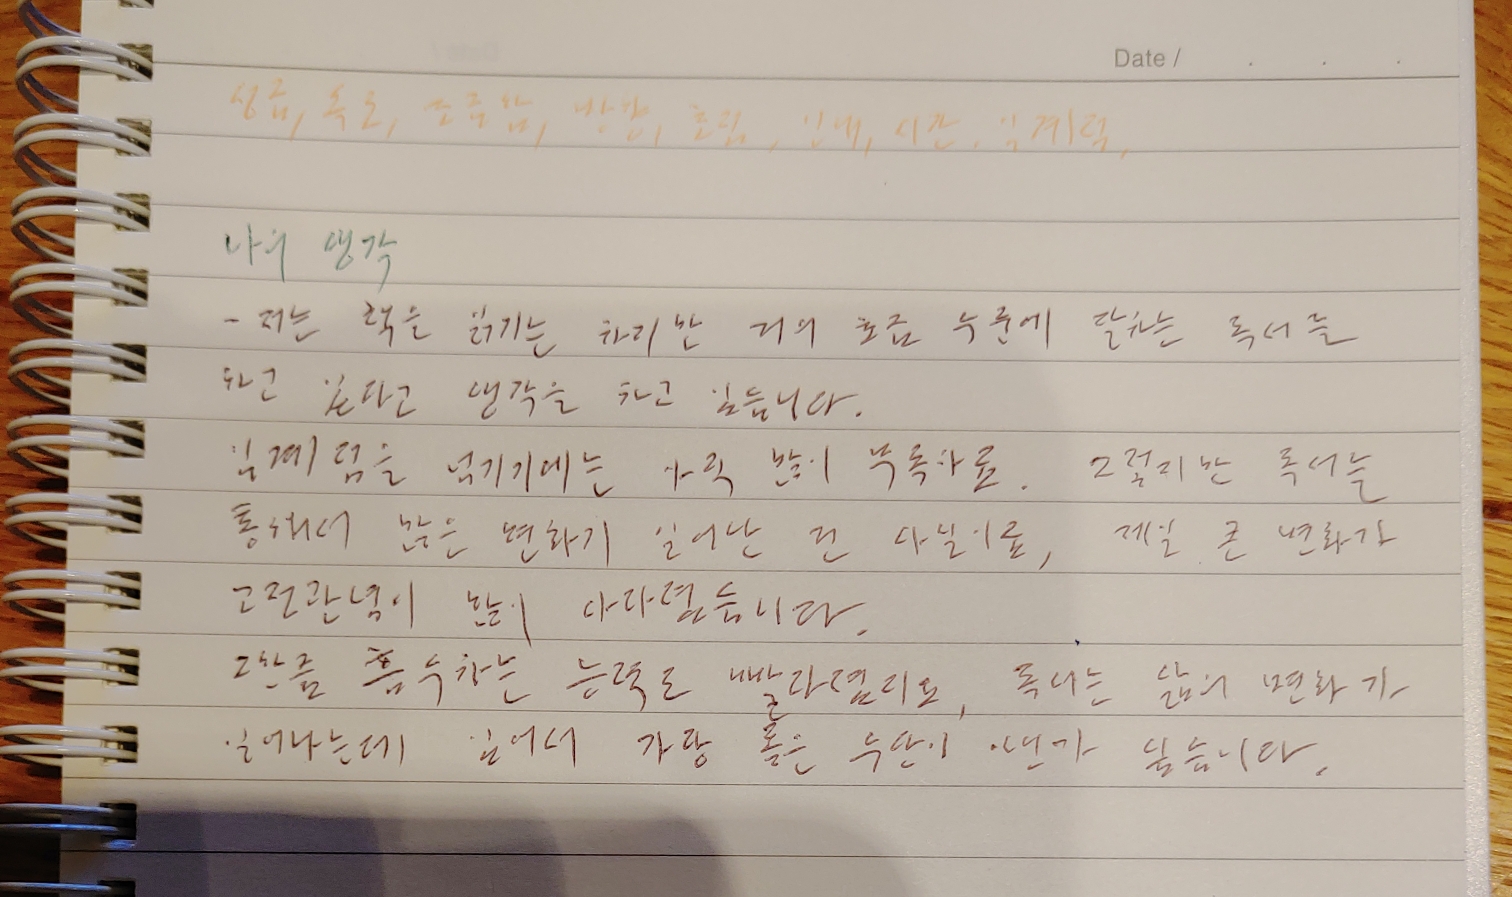 Date / . . .
성급, 속도, 조급함, 방향, 흐림, 인내, 시간, 임계점,
나의 생각
- 저는 책을 읽기는 하지만 거의 초급 수준에 달하는 독서를
하고 있다고 생각을 하고 있습니다.
임계점을 넘기기에는 아직 많이 부족하죠. 그렇지만 독서를
통해서 많은 변화가 일어난 건 사실이죠, 제일 큰 변화가
고정관념이 많이 사라졌습니다.
그만큼 흡수하는 능력도 빨라졌지요, 독서는 삶의 변화가
일어나는데 있어서 가장 좋은 수단이 아닌가 싶습니다.